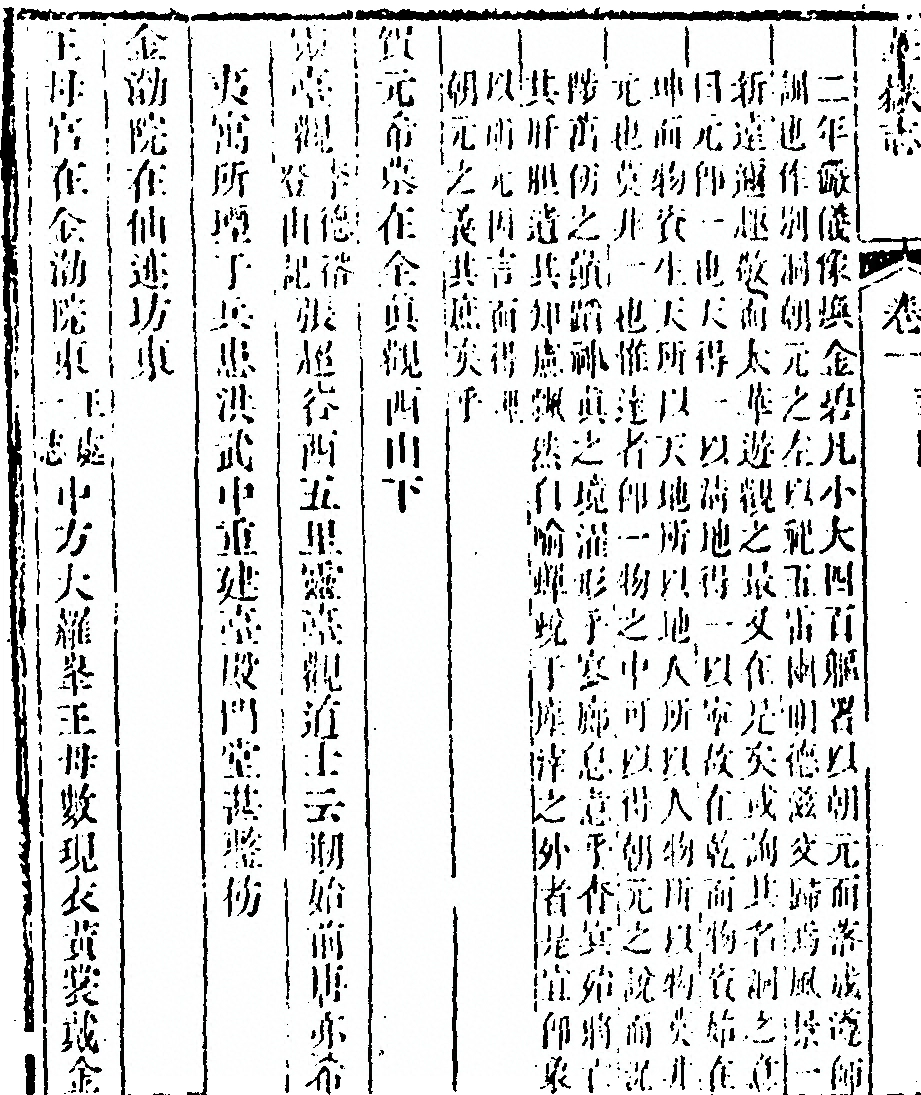 華嶽志 卷一
二年厥後像與金碧凡小大四百軀署以朝元而落成遵師
訓也作別洞朝元之左以祀五雷幽明德滋交歸焉風景一
新遠邇趨敬而太華遊觀之最又在是矣或詢其名洞之意
曰元仰一也天得一以清地得一以寧故在乾而物資始在
坤而物資生天所以天地所以地人所以人物所以物莫非
元也莫非一也惟達者仰一物之中可以得朝元之說而況
陟萬仞之巔蹈神真之境濯形乎寥廓息意乎杳冥殆將亡
其肝膽遺其知慮飄然自喻蟬蛻于塵滓之外者是宜仰象
以前元因言而得理
朝元之義其庶矣乎
賀元希墓在全真觀西山下
靈臺觀李德裕登山記張超谷西五里靈臺觀道士云剏始前唐亦希
夷寓所壇于兵患洪武中重建臺殿門堂甚整仿
金泐院在仙迹坊東
王母宮在金泐院東王處一志中方大羅峯王母數現衣黃裳戴金